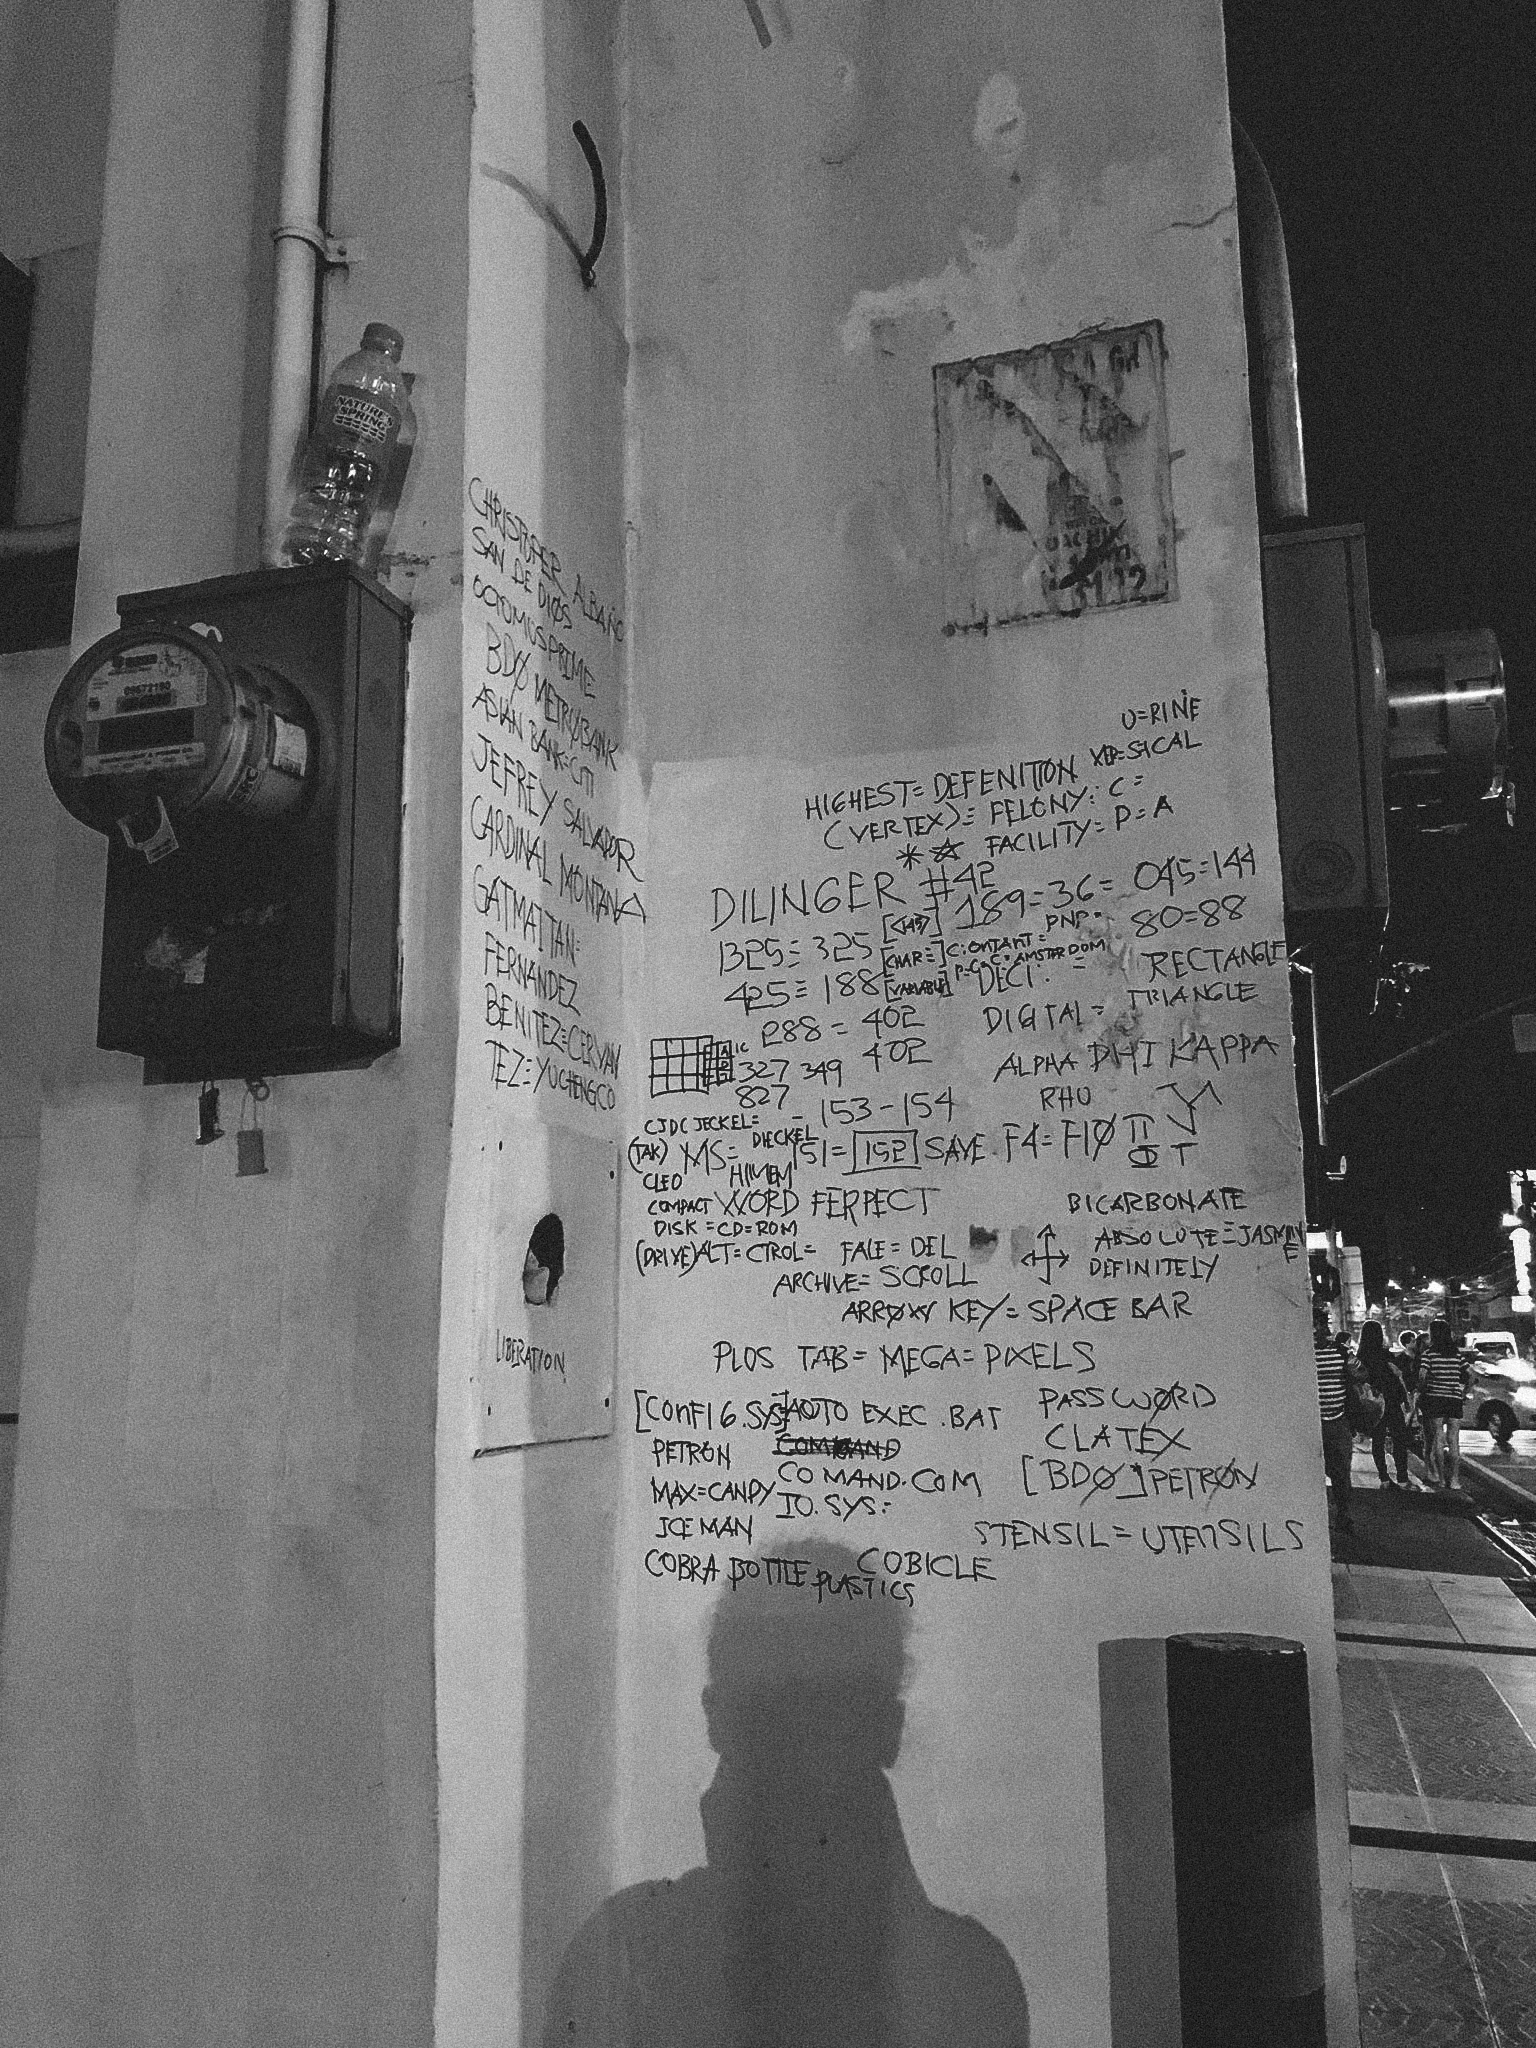 NATURE'S
SPRING
09672190
CHRISTOPER ALBAÑO
SAN DE DIØS
OCTOMUSPRIME
BDØ METRØBANK
ASIAN BANK=CITI
JEFREY SALVADOR
CARDINAL MONTANA
GATMAITAN=
FERNANDEZ
BENITEZ=CERVAN
TEZ=YUCHENGCO
LIBERATION
U=RINE
HIGHEST= DEFENITION
=SICAL
(VERTEX)= FELONY: C =
FACILITY= P=A
DILINGER #42
189=36= 045=144
1325= 325
PNP=
80=88
[CHAR=]
425= 188 [VARIABLE] DECI: = RECTANGLE
288= 402 DIGITAL= TRIANGLE
327 349 402 ALPHA PHI KAPPA
827 RHO
= 153-154
CJDC JECKEL=
DIECKEL
(TAK) MS= 151= 152 SAVE. F4= F1Ø π
Φ T
CLEO HIMEM
COMPACT WORD FERPECT BICARBONATE
DISK =CD=ROM
(DRIVE)ALT= CTROL= FALE= DEL ABSOLUTE=JASMINE
DEFINITELY
ARCHIVE= SCROLL
ARRØW KEY= SPACE BAR
PLOS TAB= MEGA= PIXELS
[CONFIG.SYS] AOTO EXEC .BAT PASSWØRD
PETRON CLATEX
COMAND.COM [BDØ] PETRØN
MAX=CANDY IO.SYS=
ICEMAN STENSIL= UTENSILS
COBRA BOTTLE PLASTICS COBICLE